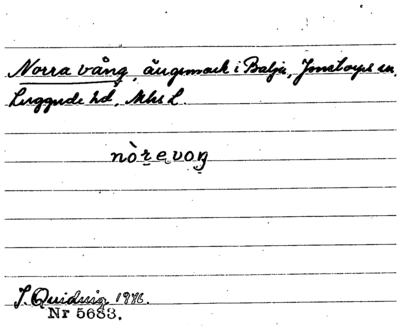 Norra vång, ängsmark i Balja, Jonstorps sn,
Luggude hd, Mhs L.
nòr̲e̲voŋ
J. Quidwig 1976.
Nr 5683.